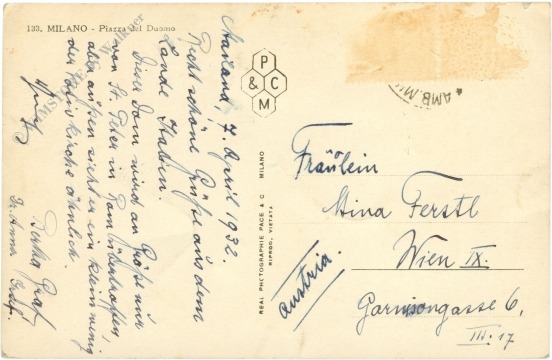 133. MILANO - Piazza del Duomo
Mailand, 7. April 1932.
Recht schöne Grüße aus dem
Lande Italien.
Dieser Dom wird an Größe nur
von St. Peter in Rom übertroffen,
aber außen sieht er ein klein wenig
der Votivkirche ähnlich.
Graf
Dr. Anna Graf.
P
& C
M
REAL PHOTOGRAPHIE PACE & C MILANO
RIPROD. VIETATA
AMB. MI
Fräulein
Mina Ferstl
Wien IX.
Garnisongasse 6,
III. 17
Austria.